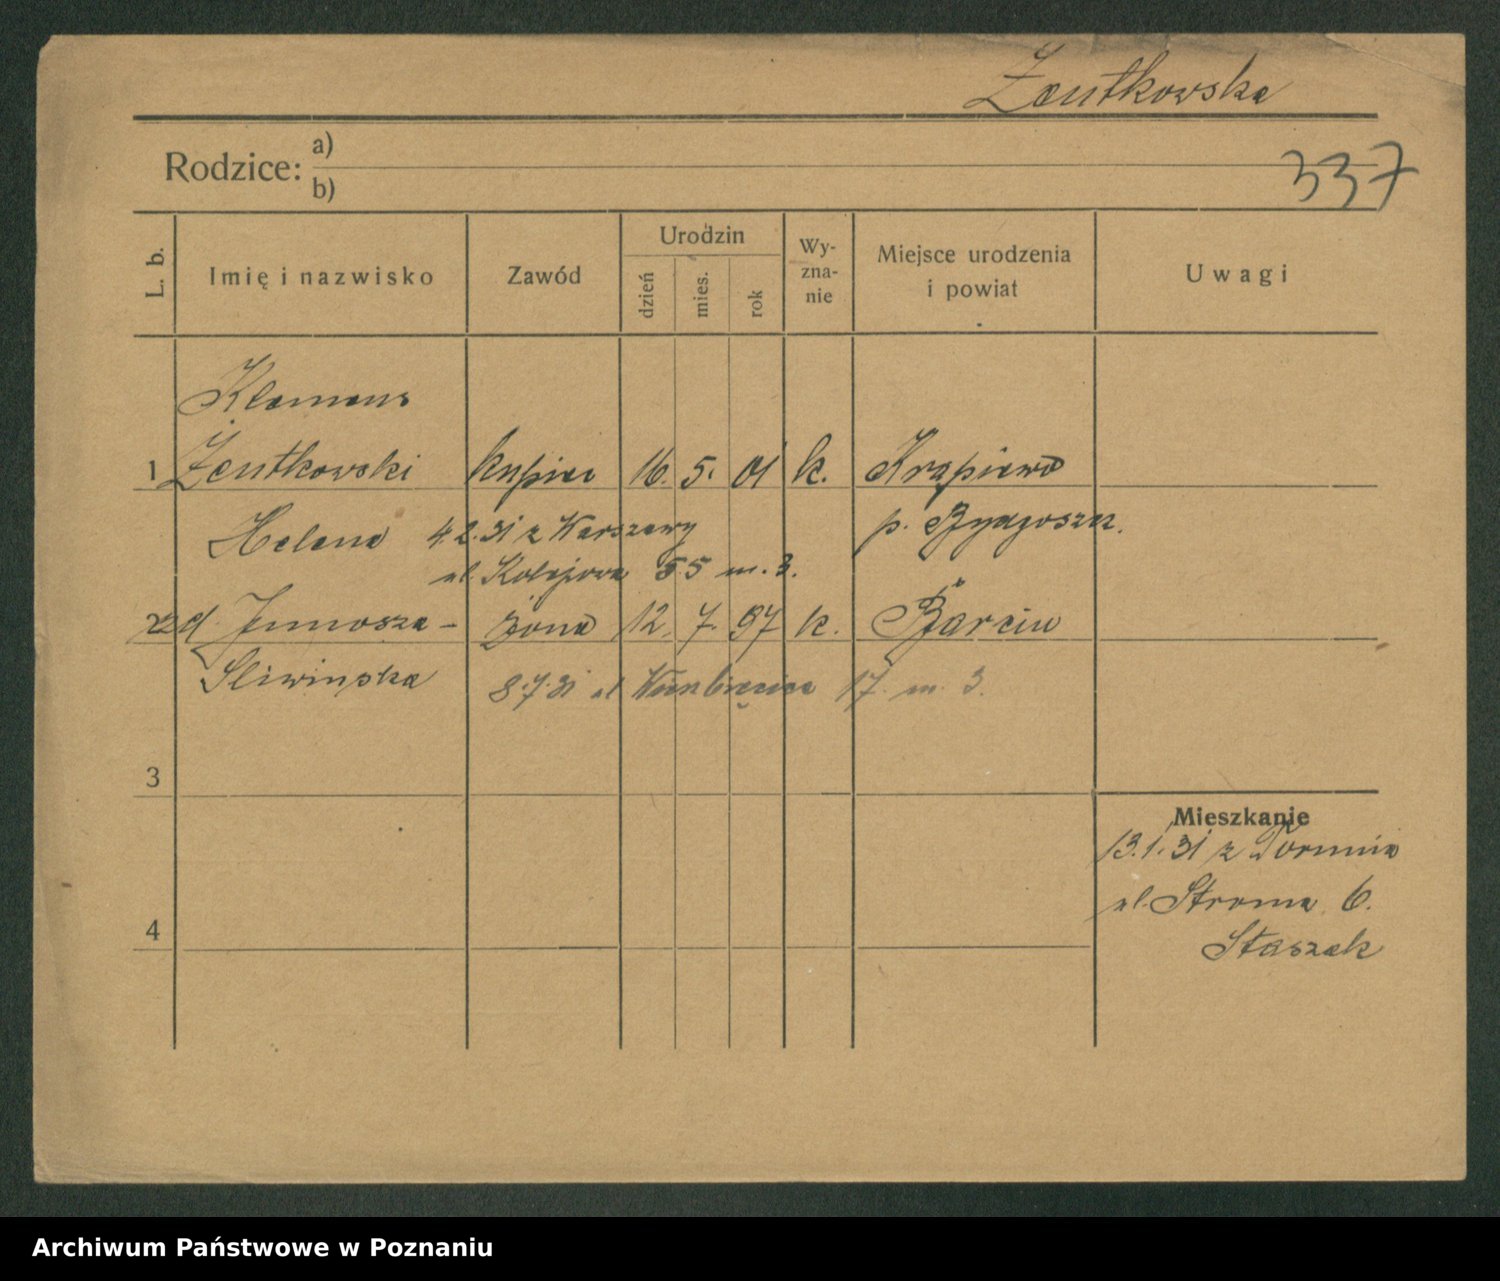 Żentkowska
Rodzice: a)
b)
337
L. b.
Imię i nazwisko
Zawód
Urodzin
dzień
mies.
rok
Wy-
zna-
nie
Miejsce urodzenia
i powiat
Uwagi
Klemens
1 Żentkowski kupiec 16. 5. 01 k. Krąpiewo
Helena 4.2.31 z Warszawy p. Bydgoszcz.
ul. Kolejowa 55 m. 3.
2 zd. Junosza- żona 12. 7. 97 k. Barcin
Śliwińska 8.7.31 ul. Wierzbięcice 17. m. 3.
3
Mieszkanie
13.1.31 z Torunia
ul. Stroma 6.
4
Staszak
Archiwum Państwowe w Poznaniu